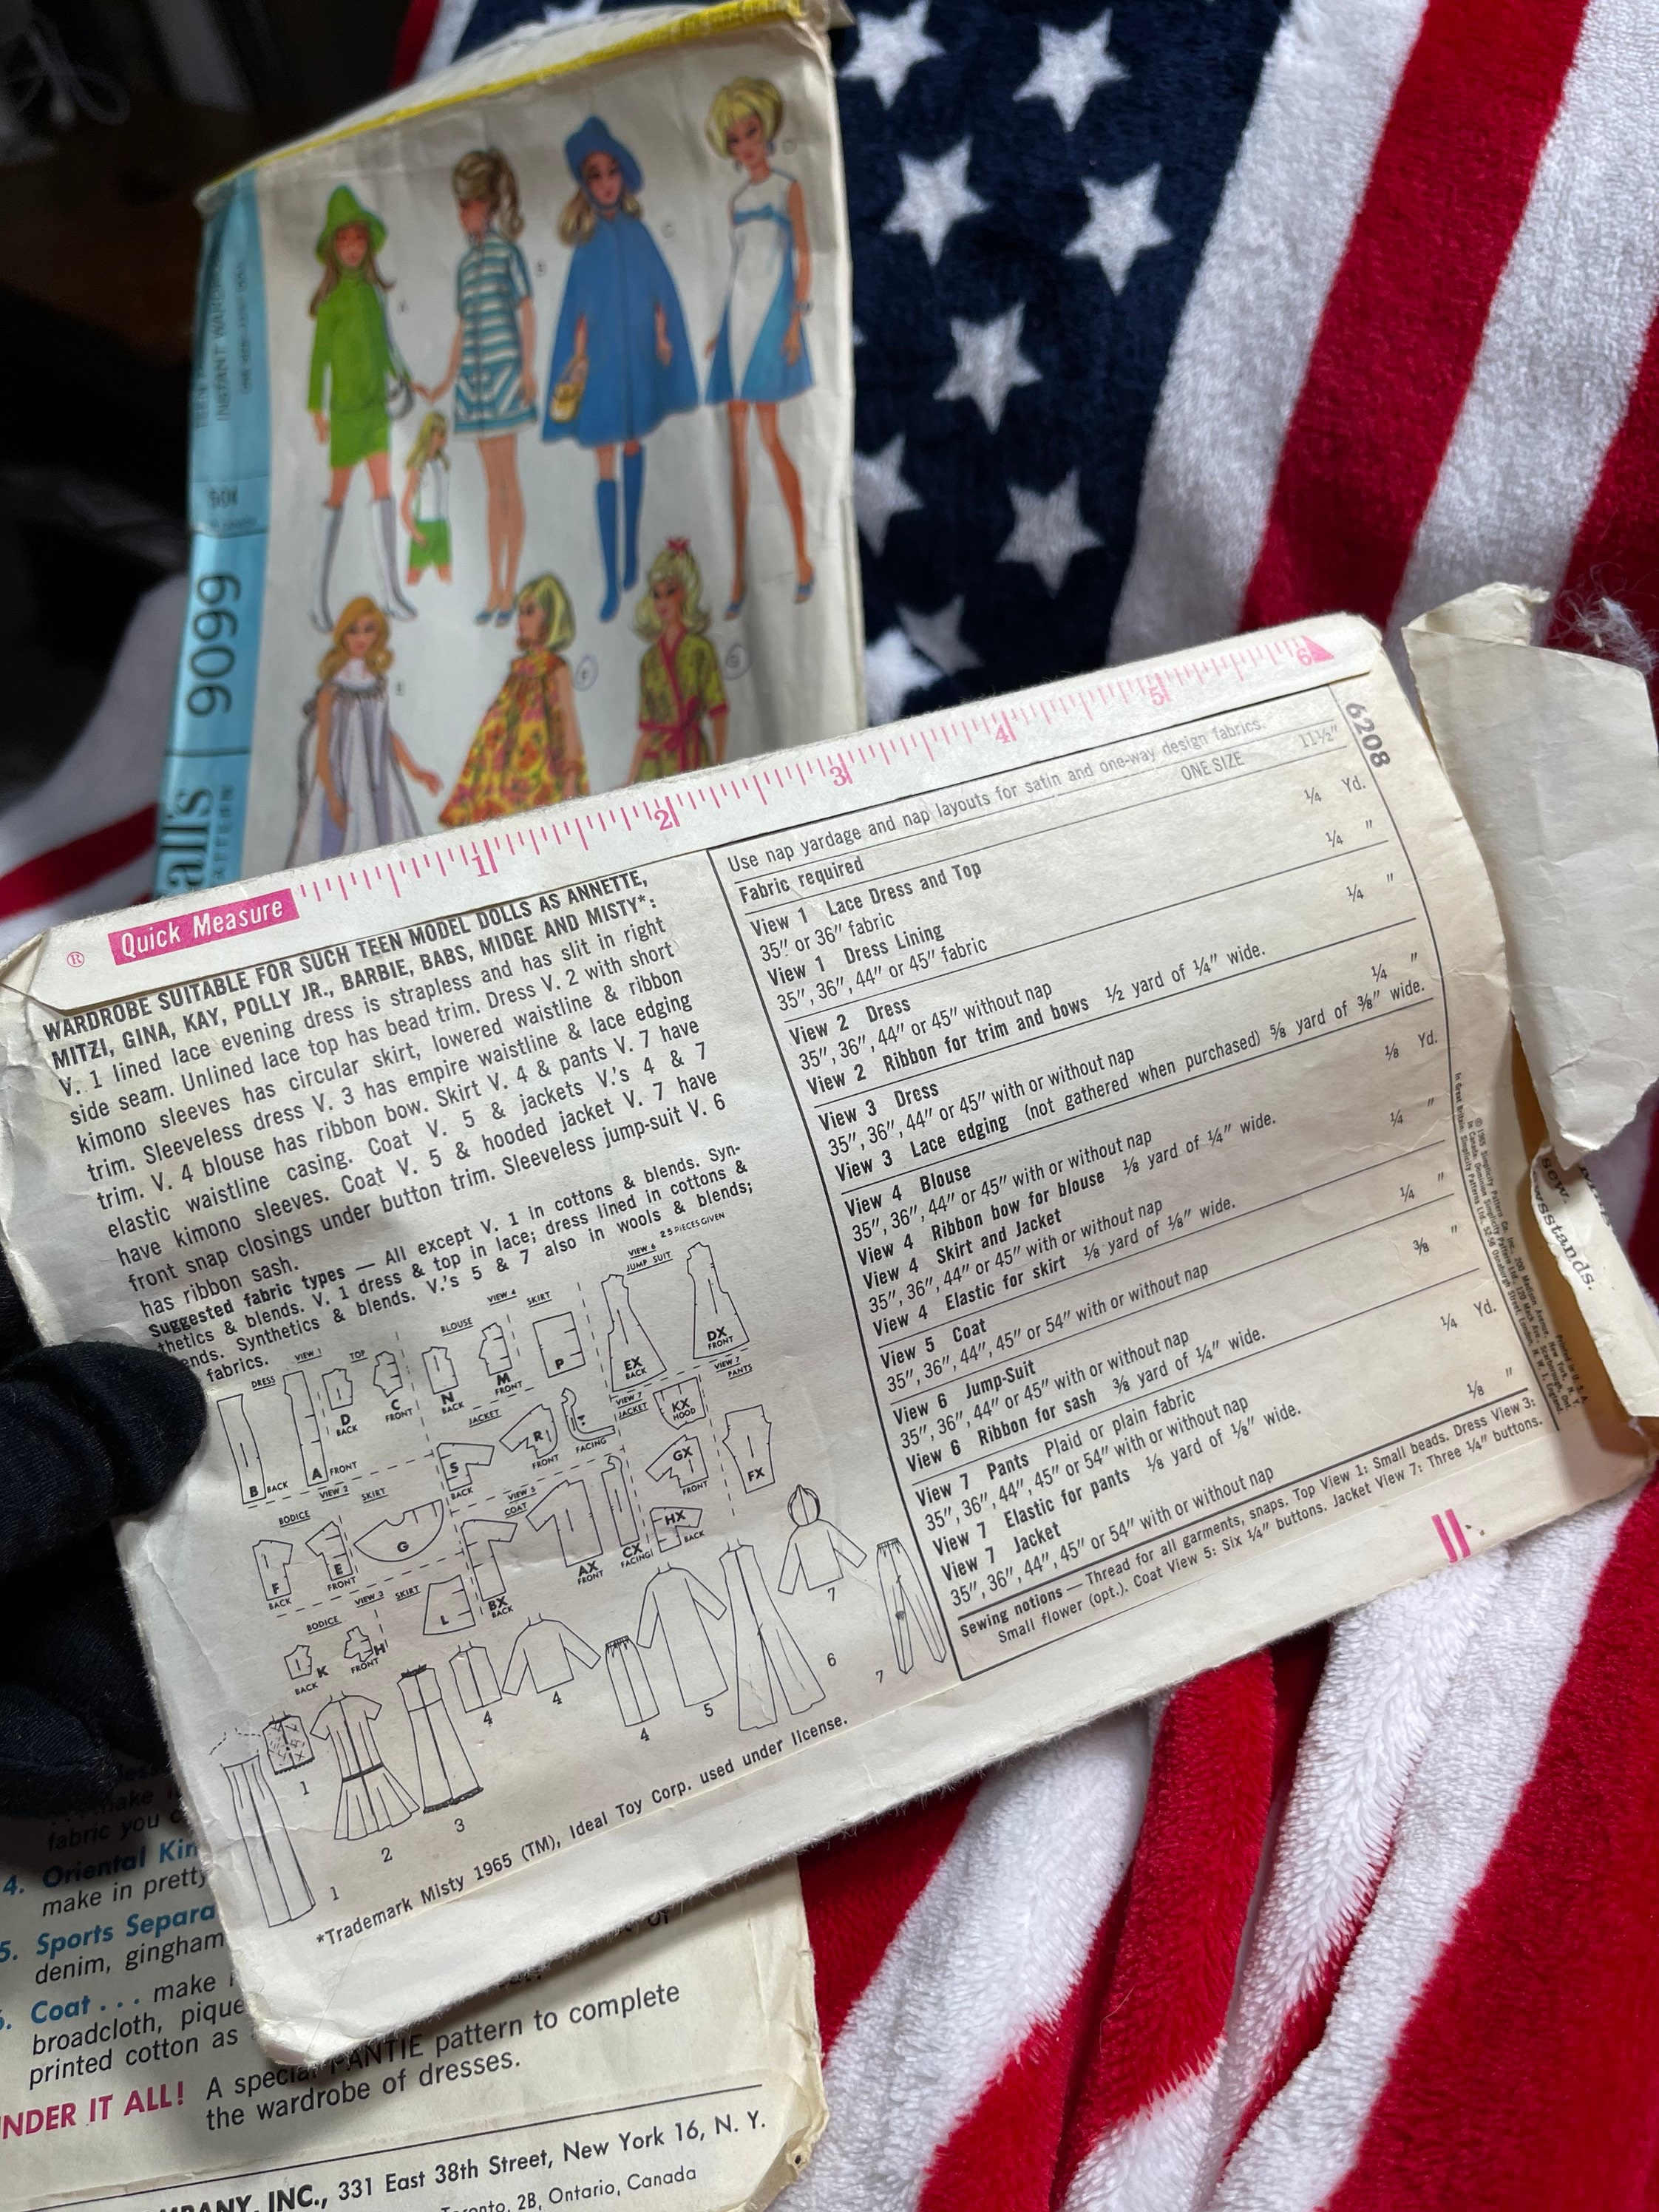 INSTANT WARDROBE
9099
all's
PATTERN
A
B
C
D
E
F
G
® Quick Measure 1 2 3 4 5 6
6208
WARDROBE SUITABLE FOR SUCH TEEN MODEL DOLLS AS ANNETTE,
MITZI, GINA, KAY, POLLY JR., BARBIE, BABS, MIDGE AND MISTY*:
V. 1 lined lace evening dress is strapless and has slit in right
side seam. Unlined lace top has bead trim. Dress V. 2 with short
kimono sleeves has circular skirt, lowered waistline & ribbon
trim. Sleeveless dress V. 3 has empire waistline & lace edging
trim. V. 4 blouse has ribbon bow. Skirt V. 4 & pants V. 7 have
elastic waistline casing. Coat V. 5 & jackets V.'s 4 & 7
have kimono sleeves. Coat V. 5 & hooded jacket V. 7 have
front snap closings under button trim. Sleeveless jump-suit V. 6
has ribbon sash.
Suggested fabric types — All except V. 1 in cottons & blends. Syn-
thetics & blends. V. 1 dress & top in lace; dress lined in cottons &
ends. Synthetics & blends. V.'s 5 & 7 also in wools & blends;
fabrics.
25 PIECES GIVEN
DRESS
VIEW 1
TOP
BLOUSE
VIEW 4
SKIRT
VIEW 6
JUMP SUIT
B BACK
A FRONT
D BACK
C FRONT
N BACK
M FRONT
P
EX BACK
DX FRONT
VIEW 2
BODICE
SKIRT
JACKET
S BACK
R FRONT
T FACING
VIEW 7
JACKET
KX HOOD
VIEW 7
PANTS
GX FRONT
FX
HX BACK
F BACK
E FRONT
G
VIEW 5
COAT
BX BACK
AX FRONT
CX FACING
VIEW 3
BODICE
SKIRT
K BACK
H FRONT
L
1
1
2
3
4
4
4
5
6
7
7
*Trademark Misty 1965 (TM), Ideal Toy Corp. used under license.
Use nap yardage and nap layouts for satin and one-way design fabrics.
Fabric required ONE SIZE 11½″
View 1 Lace Dress and Top
35″ or 36″ fabric ¼ Yd.
View 1 Dress Lining
35″, 36″, 44″ or 45″ fabric ¼ ″
View 2 Dress
35″, 36″, 44″ or 45″ without nap ¼ ″
View 2 Ribbon for trim and bows ½ yard of ¼″ wide.
View 3 Dress
35″, 36″, 44″ or 45″ with or without nap ¼ ″
View 3 Lace edging (not gathered when purchased) ⅝ yard of ⅜″ wide.
View 4 Blouse
35″, 36″, 44″ or 45″ with or without nap ⅛ Yd.
View 4 Ribbon bow for blouse ⅛ yard of ¼″ wide.
View 4 Skirt and Jacket
35″, 36″, 44″ or 45″ with or without nap ¼ ″
View 4 Elastic for skirt ⅛ yard of ⅛″ wide.
View 5 Coat
35″, 36″, 44″, 45″ or 54″ with or without nap ¼ ″
View 6 Jump-Suit
35″, 36″, 44″ or 45″ with or without nap ⅜ ″
View 6 Ribbon for sash ⅜ yard of ¼″ wide.
View 7 Pants Plaid or plain fabric
35″, 36″, 44″, 45″ or 54″ with or without nap ¼ Yd.
View 7 Elastic for pants ⅛ yard of ⅛″ wide.
View 7 Jacket
35″, 36″, 44″, 45″ or 54″ with or without nap ⅛ ″
Sewing notions — Thread for all garments, snaps. Top View 1: Small beads. Dress View 3:
Small flower (opt.). Coat View 5: Six ¼″ buttons. Jacket View 7: Three ¼″ buttons.
© 1965 Simplicity Pattern Co. Inc., 200 Madison Avenue, New York, N. Y.
Printed in U. S. A.
sew.
ewsstands.
make
fabric you c
4. Oriental Kim
make in pretty
5. Sports Separa
denim, gingham
Coat . . . make
broadcloth, pique
printed cotton as
NDER IT ALL! A special PANTIE pattern to complete
the wardrobe of dresses.
MPANY, INC., 331 East 38th Street, New York 16, N. Y.
Toronto, 2B, Ontario, Canada